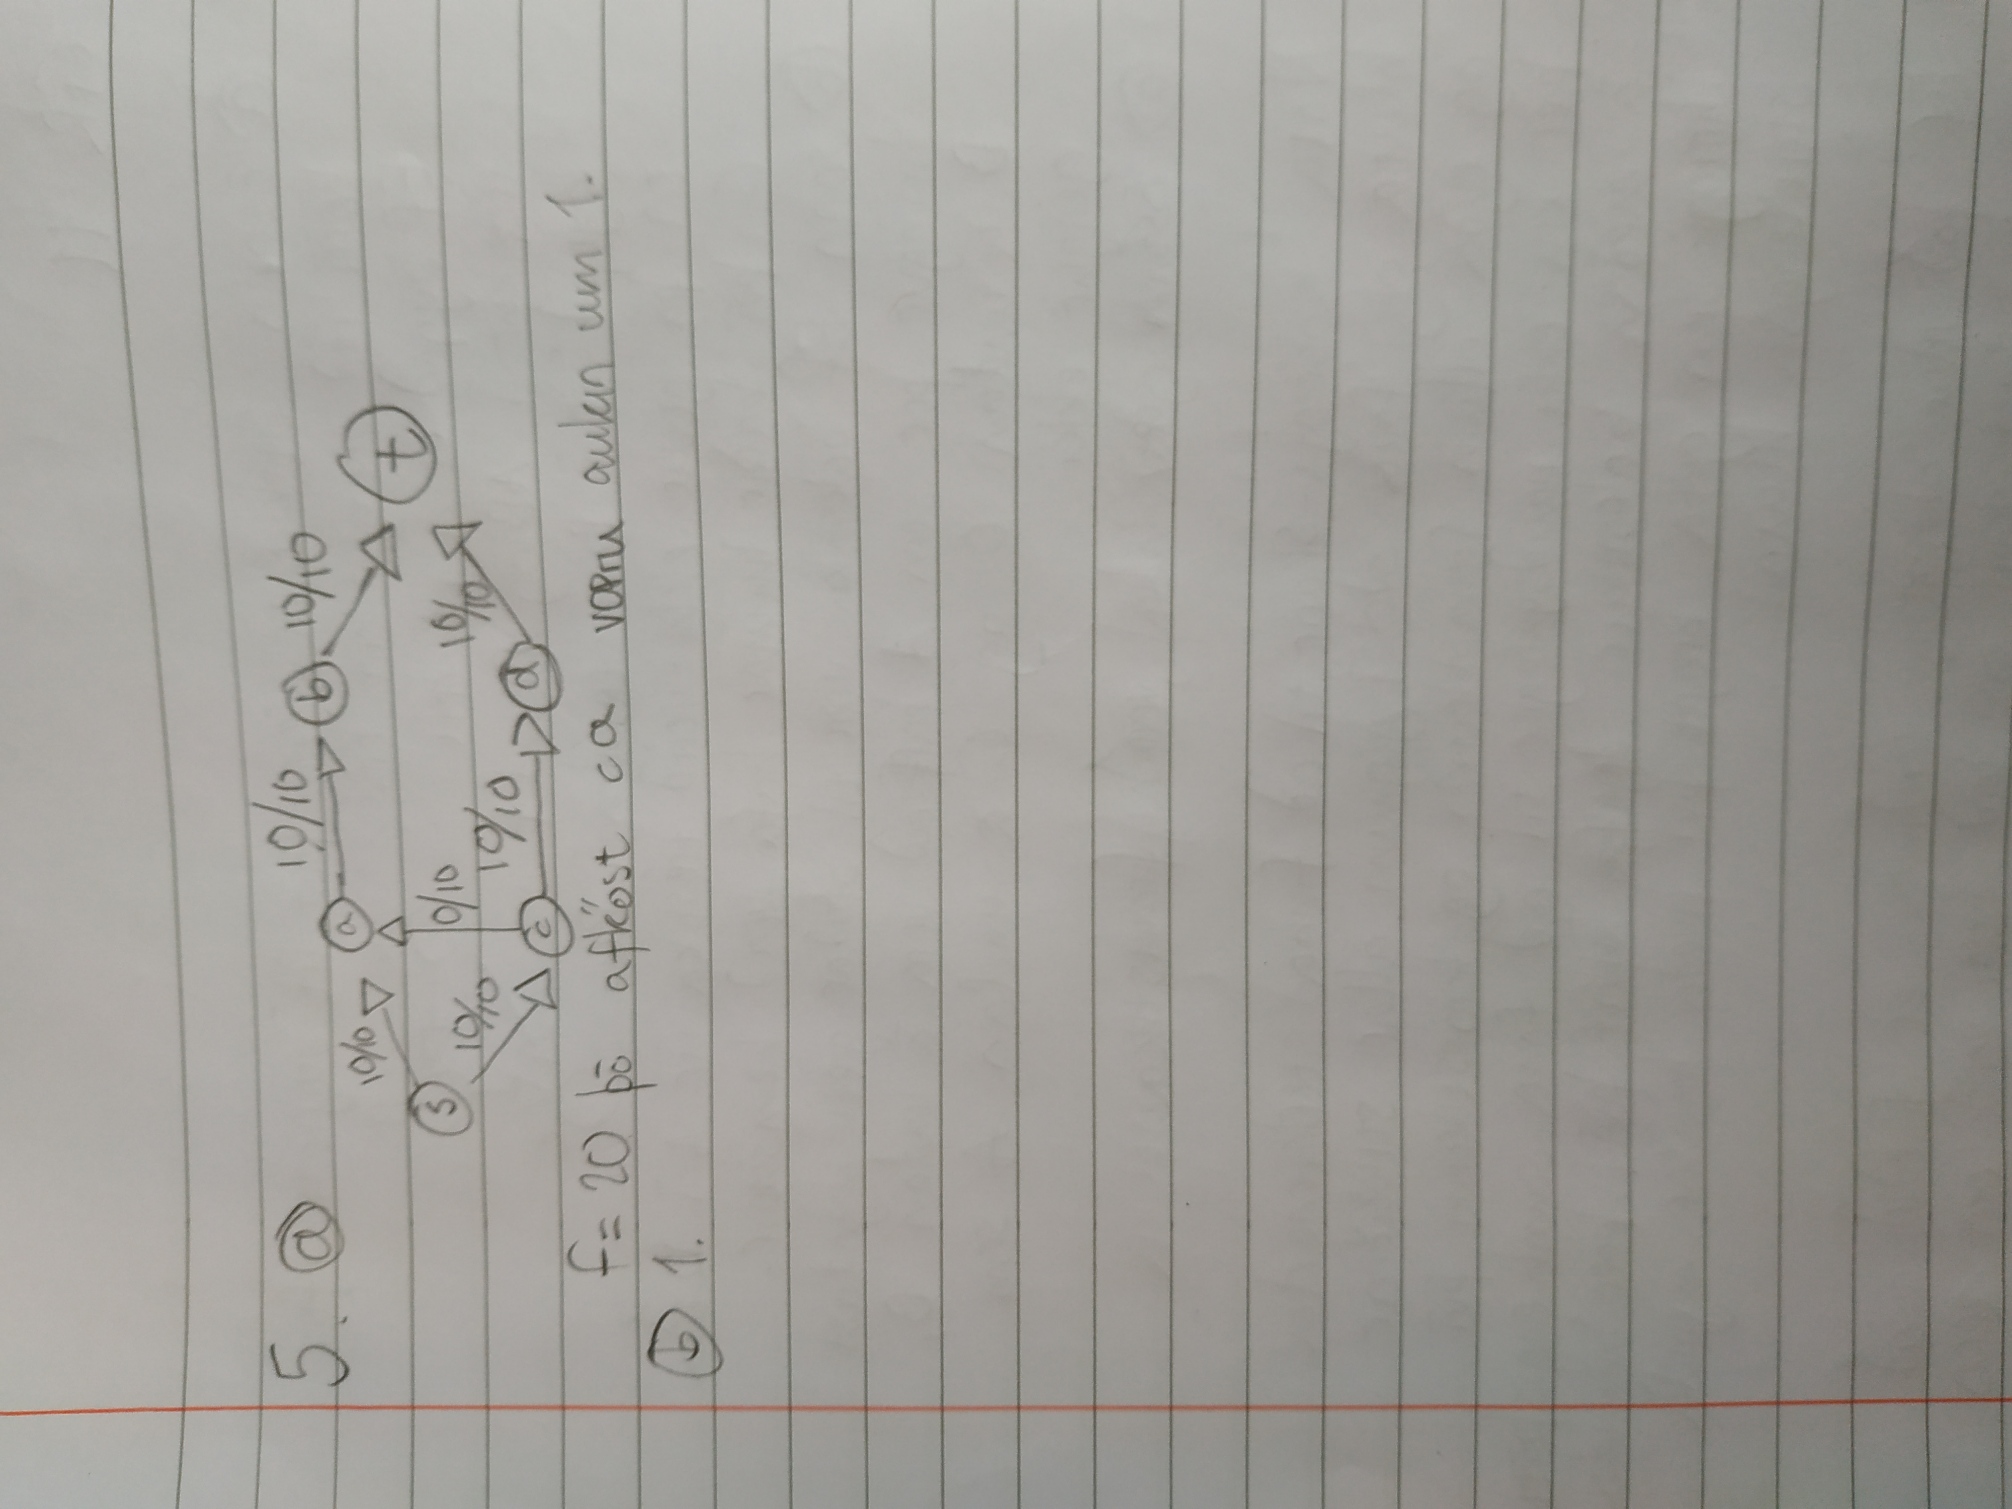 5. a
10/10 b 10/10
10/10 a
t
s 10/10 0/10 10/10 10/10
c d
f = 20 þó afköst ca væru aukin um 1.
b 1.